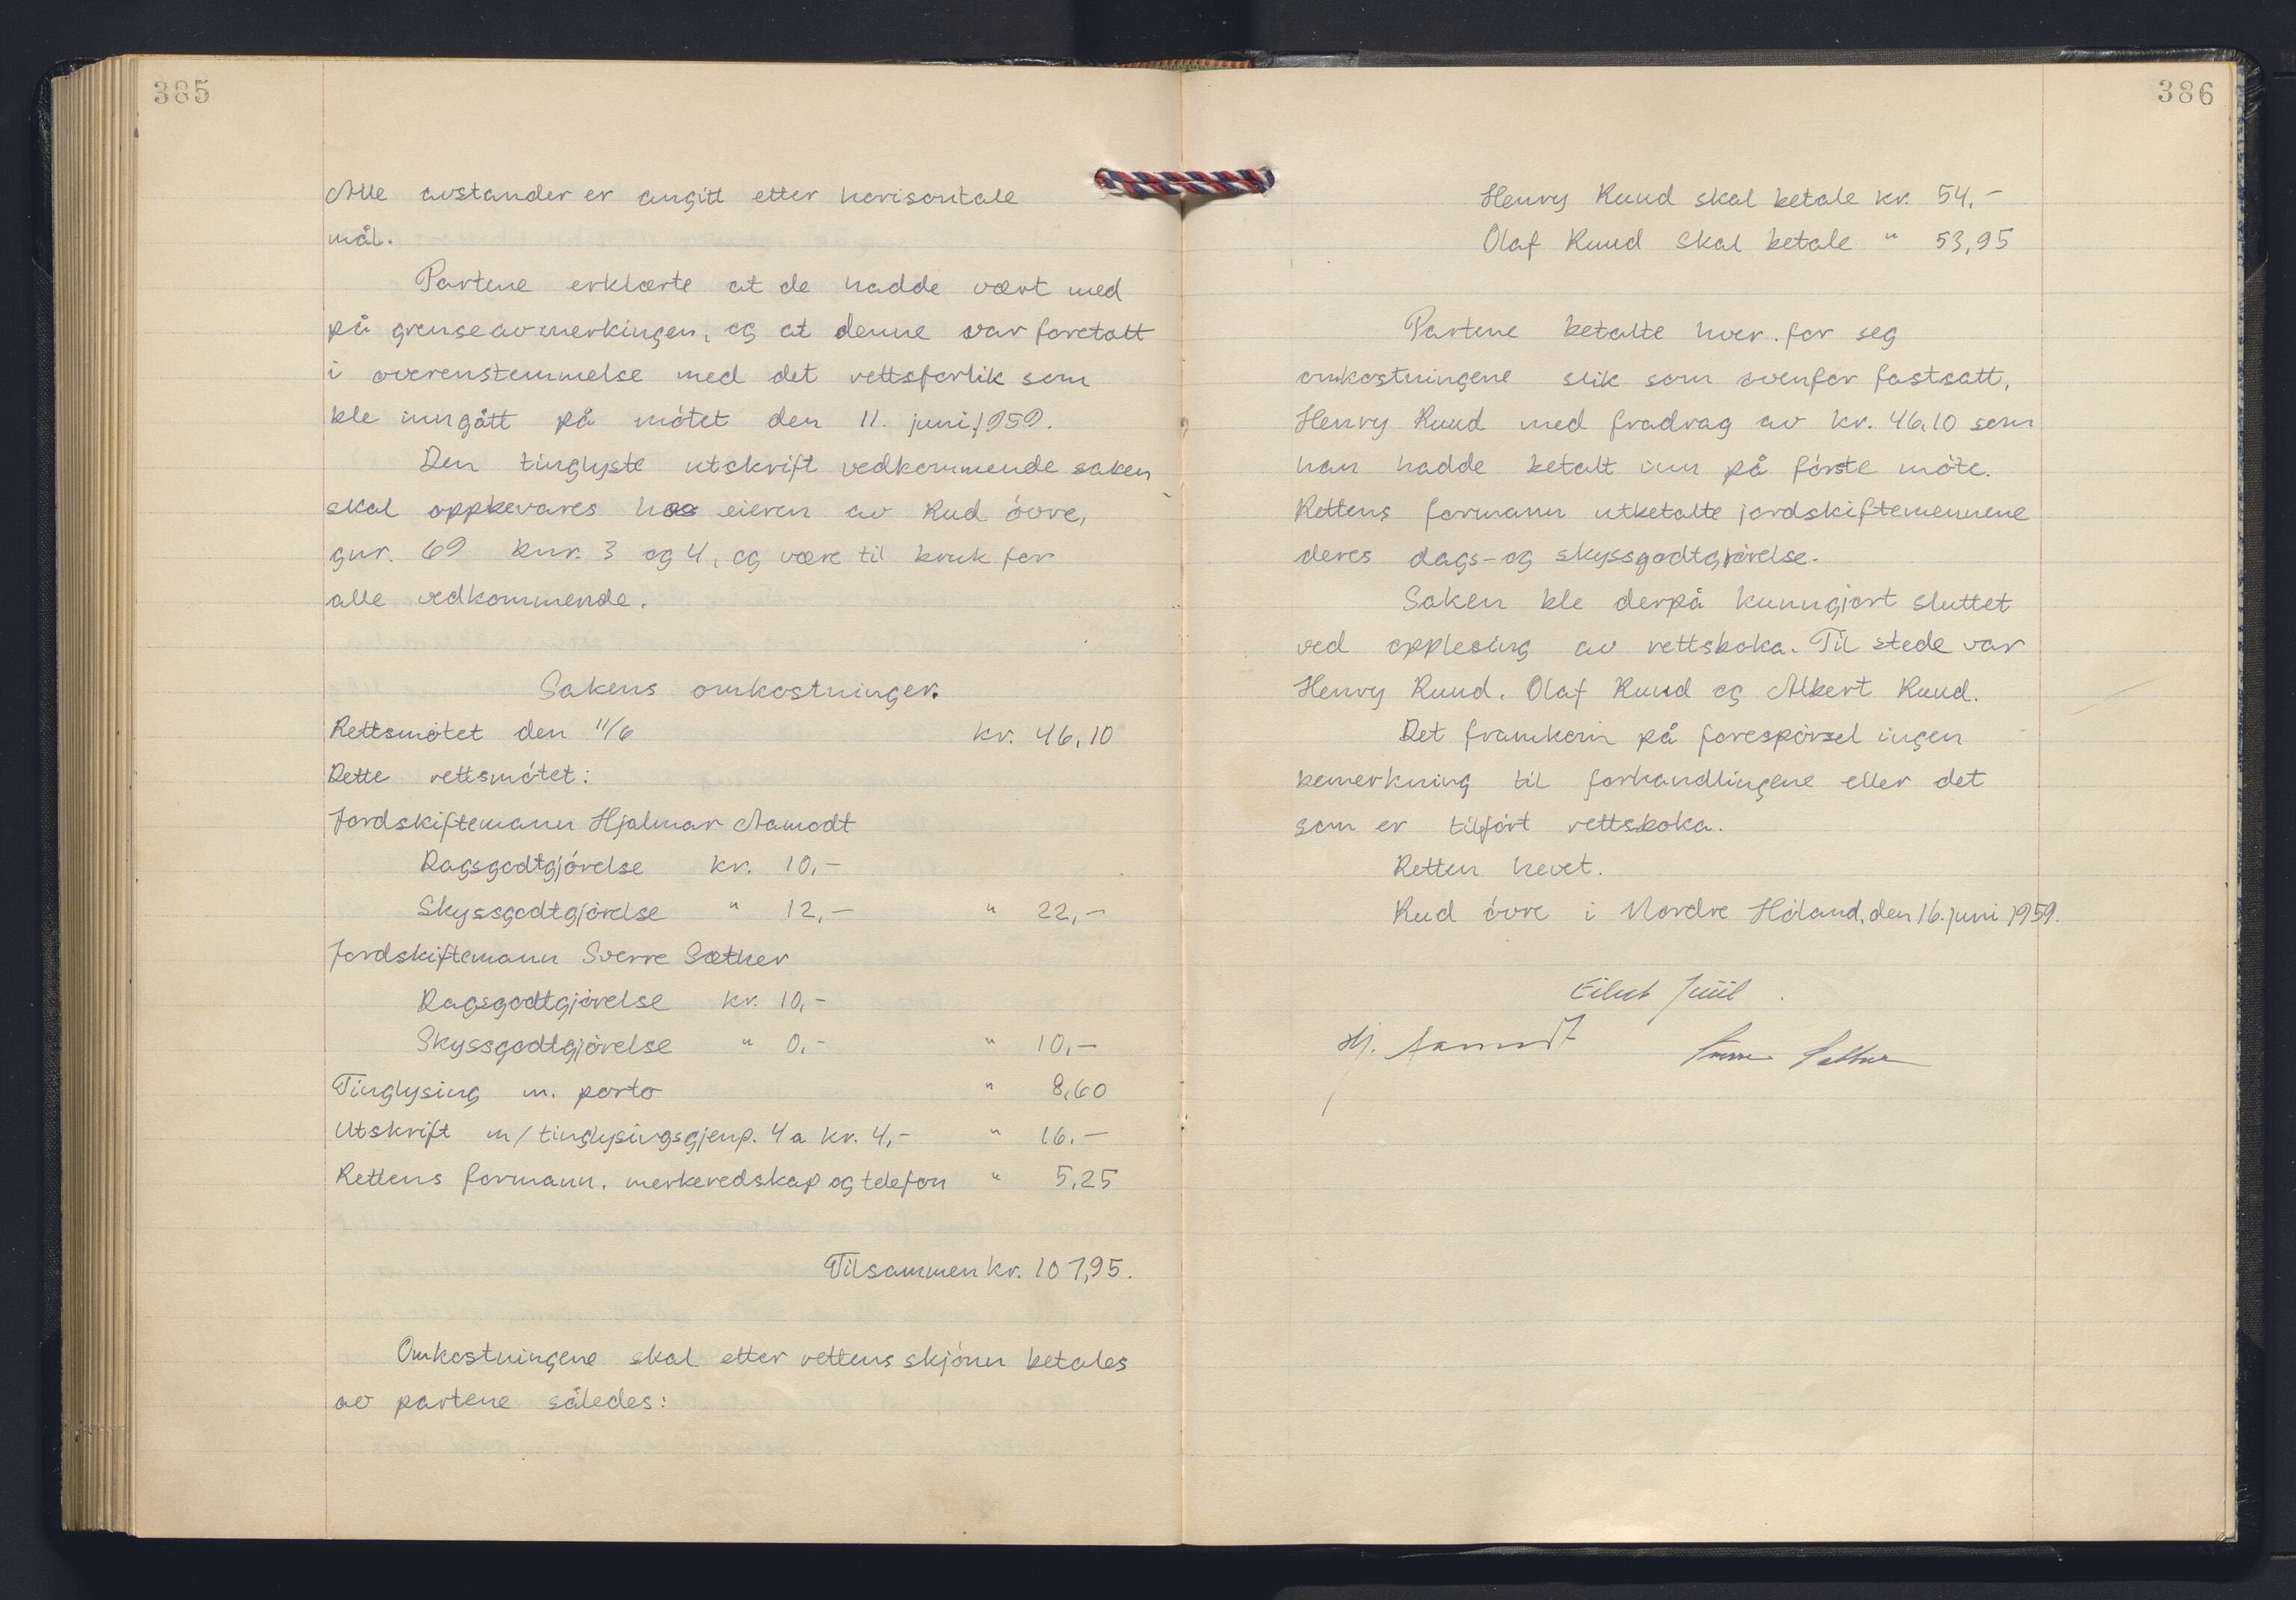 385
Alle avstander er angitt etter horisontale
mål.
Partene erklærte at de hadde vært med
på grenseavmerkingen, og at denne var foretatt
i overenstemmelse med det rettsforlik som
ble inngått på møtet den 11. juni 1959.
Den tinglyste utskrift vedkommende saken
skal oppbevares hos eieren av Rud øvre,
gnr. 69 bnr. 3 og 4, og være til bruk for
alle vedkommende.
Sakens omkostninger.
Rettsmøtet den 11/6 kr. 46,10
Dette rettsmøtet:
Jordskiftemann Hjalmar Aamodt
Dagsgodtgjørelse kr. 10,-
Skyssgodtgjørelse " 12,- " 22,-
Jordskiftemann Sverre Sæther
Dagsgodtgjørelse kr. 10,-
Skyssgodtgjørelse " 0,- " 10,-
Tinglysing m. porto " 8,60
Utskrift m/tinglysingsgjenp. 4 a kr. 4,- " 16,-
Rettens formann, merkeredskap og telefon " 5,25
Tilsammen kr. 107,95.
Omkostningene skal etter rettens skjønn betales
av partene således:
386
Henry Ruud skal betale kr. 54,-
Olaf Ruud skal betale " 53,95
Partene betalte hver for seg
omkostningene slik som ovenfor fastsatt,
Henry Ruud med fradrag av kr. 46,10 som
han hadde betalt inn på første møte.
Rettens formann utbetalte jordskiftemennene
deres dags- og skyssgodtgjørelse.
Saken ble derpå kunngjort sluttet
ved opplesing av rettsboka. Til stede var
Henry Ruud, Olaf Ruud og Albert Ruud.
Det framkom på forespørsel ingen
bemerkning til forhandlingene eller det
som er tilført rettsboka.
Retten hevet.
Rud øvre i Nordre Høland, den 16. juni 1959.
Eilert Juul
Hj. Aamodt Sverre Sæther